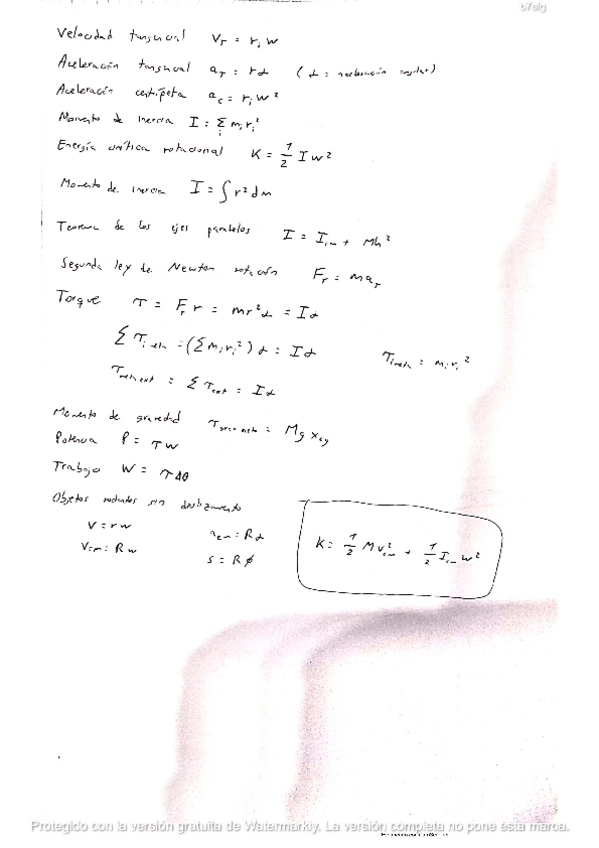 b7elg
Velocidad tangencial V_T = r_i w
Aceleración tangencial a_T = r α (α = aceleración angular)
Aceleración centrípeta a_c = r_i w²
Momento de inercia I = Σ_i m_i r_i²
Energía cinética rotacional K = 1/2 I w²
Momento de inercia I = ∫ r² dm
Teorema de los ejes paralelos I = I_cm + Mh²
Segunda ley de Newton rotación F_T = m a_T
Torque τ = F_T r = m r² α = I α
Σ τ_i neto = (Σ m_i r_i²) α = I α τ_i neto = m_i r_i²
τ_net ext = Σ τ_ext = I α
Momento de gravedad = M g x_cg
Potencia P = τ w
Trabajo W = τ Δθ
Objetos rodantes sin deslizamiento
V = r w a_cm = R α
V_cm = R w s = R φ
K = 1/2 M v_cm² + 1/2 I_cm w²
Protegido con la versión gratuita de Watermarkly. La versión completa no pone esta marca.